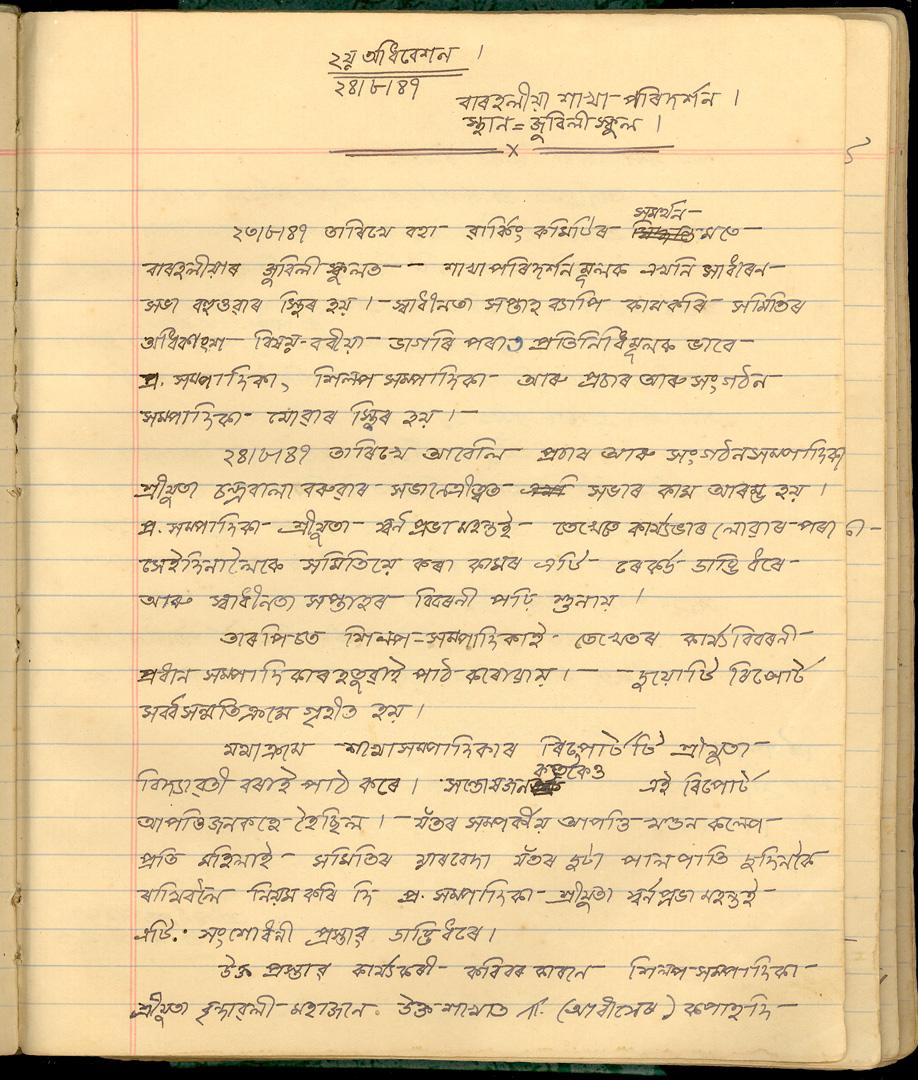 ২য় অধিবেশন ।
২৪।৮।৪৭
বাৰহলীয়া শাখা পৰিদৰ্শন ।
স্থান = জুবিলী স্কুল ।
x
সমৰ্থন
২৩।৮।৪৭ তাৰিখে বহা ৱাৰ্কিং কমিটিৰ মতে
বাৰহলীয়াৰ জুবিলী স্কুলত — শাখা পৰিদৰ্শন মূলক এখনি সাধাৰন
সভা বহুওৱাৰ স্থিৰ হয় । স্বাধীনতা সপ্তাহ ব্যাপি কামকৰি সমিতিৰ
অধিকাংশ বিষয়-ববীয়া ভাগৰি পৰাত প্ৰতিনিধিমূলক ভাবে
প্ৰ. সম্পাদিকা, শিল্প সম্পাদিকা আৰু প্ৰচাৰ আৰু সংগঠন
সম্পাদিকা যোৱাৰ স্থিৰ হয় ।
২৪।৮।৪৭ তাৰিখে আবেলি প্ৰচাৰ আৰু সংগঠন সম্পাদিকা
শ্ৰীযুতা চন্দ্ৰবালা বৰুৱাৰ সভানেত্ৰীত্বত সভাৰ কাম আৰম্ভ হয় ।
প্ৰ. সম্পাদিকা শ্ৰীযুতা স্বৰ্নপ্ৰভা মহন্তই তেখেতে কাৰ্য্যভাৰ লোৱাৰ পৰা
সেইদিনালৈকে সমিতিয়ে কৰা কামৰ এটি ৰেকৰ্ড ডাঙি ধৰে
আৰু স্বাধীনতা সপ্তাহৰ বিৱৰনী পঢ়ি শুনায় ।
তাৰ পিচত শিল্প-সম্পাদিকাই তেখেতৰ কাৰ্য্যবিবৰনী
প্ৰধান সম্পাদিকাৰ হতুৱাই পাঠ কৰোৱায় । — দুয়োটি ৰিপোৰ্ট
সৰ্ব্বসন্মতিক্ৰমে গৃহীত হয় ।
যথাক্ৰমে শাখা সম্পাদিকাৰ ৰিপোৰ্ট টি শ্ৰীযুতা
কতকৈও
বিদ্যাৱতী বৰাই পাঠ কৰে । সন্তোষজনক এই ৰিপোৰ্ট
আপত্তিজনকহে হৈছিল । যঁতৰ সম্পৰ্কীয় আপত্তি খণ্ডন কল্পে
প্ৰতি মহিলাই সমিতিৰ ঘাৰবেদা যঁতৰ দুটা পাল পাতি দুদিনকৈ
ৰাখিবলৈ নিয়ম কৰি দি প্ৰ. সম্পাদিকা শ্ৰীযুতা স্বৰ্নপ্ৰভা মহন্তই
এটি সংশোধনী প্ৰস্তাৱ ডাঙি ধৰে ।
উক্ত প্ৰস্তাৱ কাৰ্য্যকৰী কৰিবৰ কাৰনে শিল্প-সম্পাদিকা
শ্ৰীযুতা বৃন্দাৱনী মহাজনে উক্ত শাখাত (আধাসেৰ) কপাহ দি